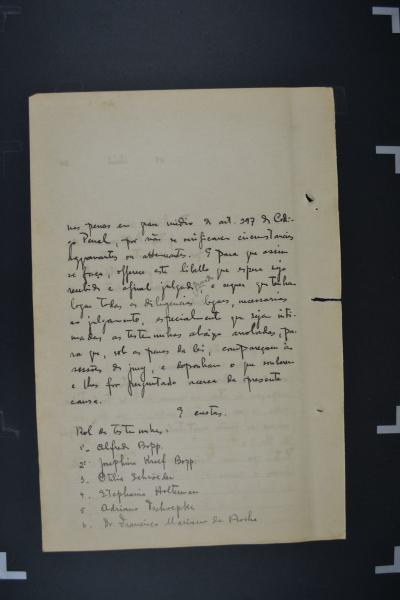 nas penas em grau medio do art. 297 do Codi-
go Penal, por não se verificarem circunstancias
aggravantes ou attenuantes. E para que assim
se faça, offerece este libello que espera seja
recebido e afinal julgado e requer que tenham
logar todas as diligencias legaes, necessarias
ao julgamento, especialmente que sejam inti-
madas as testemunhas abaixo arroladas, pa-
ra que, sob as penas da lei, compareçam ás
sessões do jury, e deponham o que souberem
e lhes for perguntado acerca da presente
causa.
E custas.
Rol de testemunhas:
1º- Alfredo Bopp.
2º Josephina Bopp
3. Otilia Schröeder
4. Stephania Holterman
5. Adriano
6. Dr. Francisco Mariano da Rocha